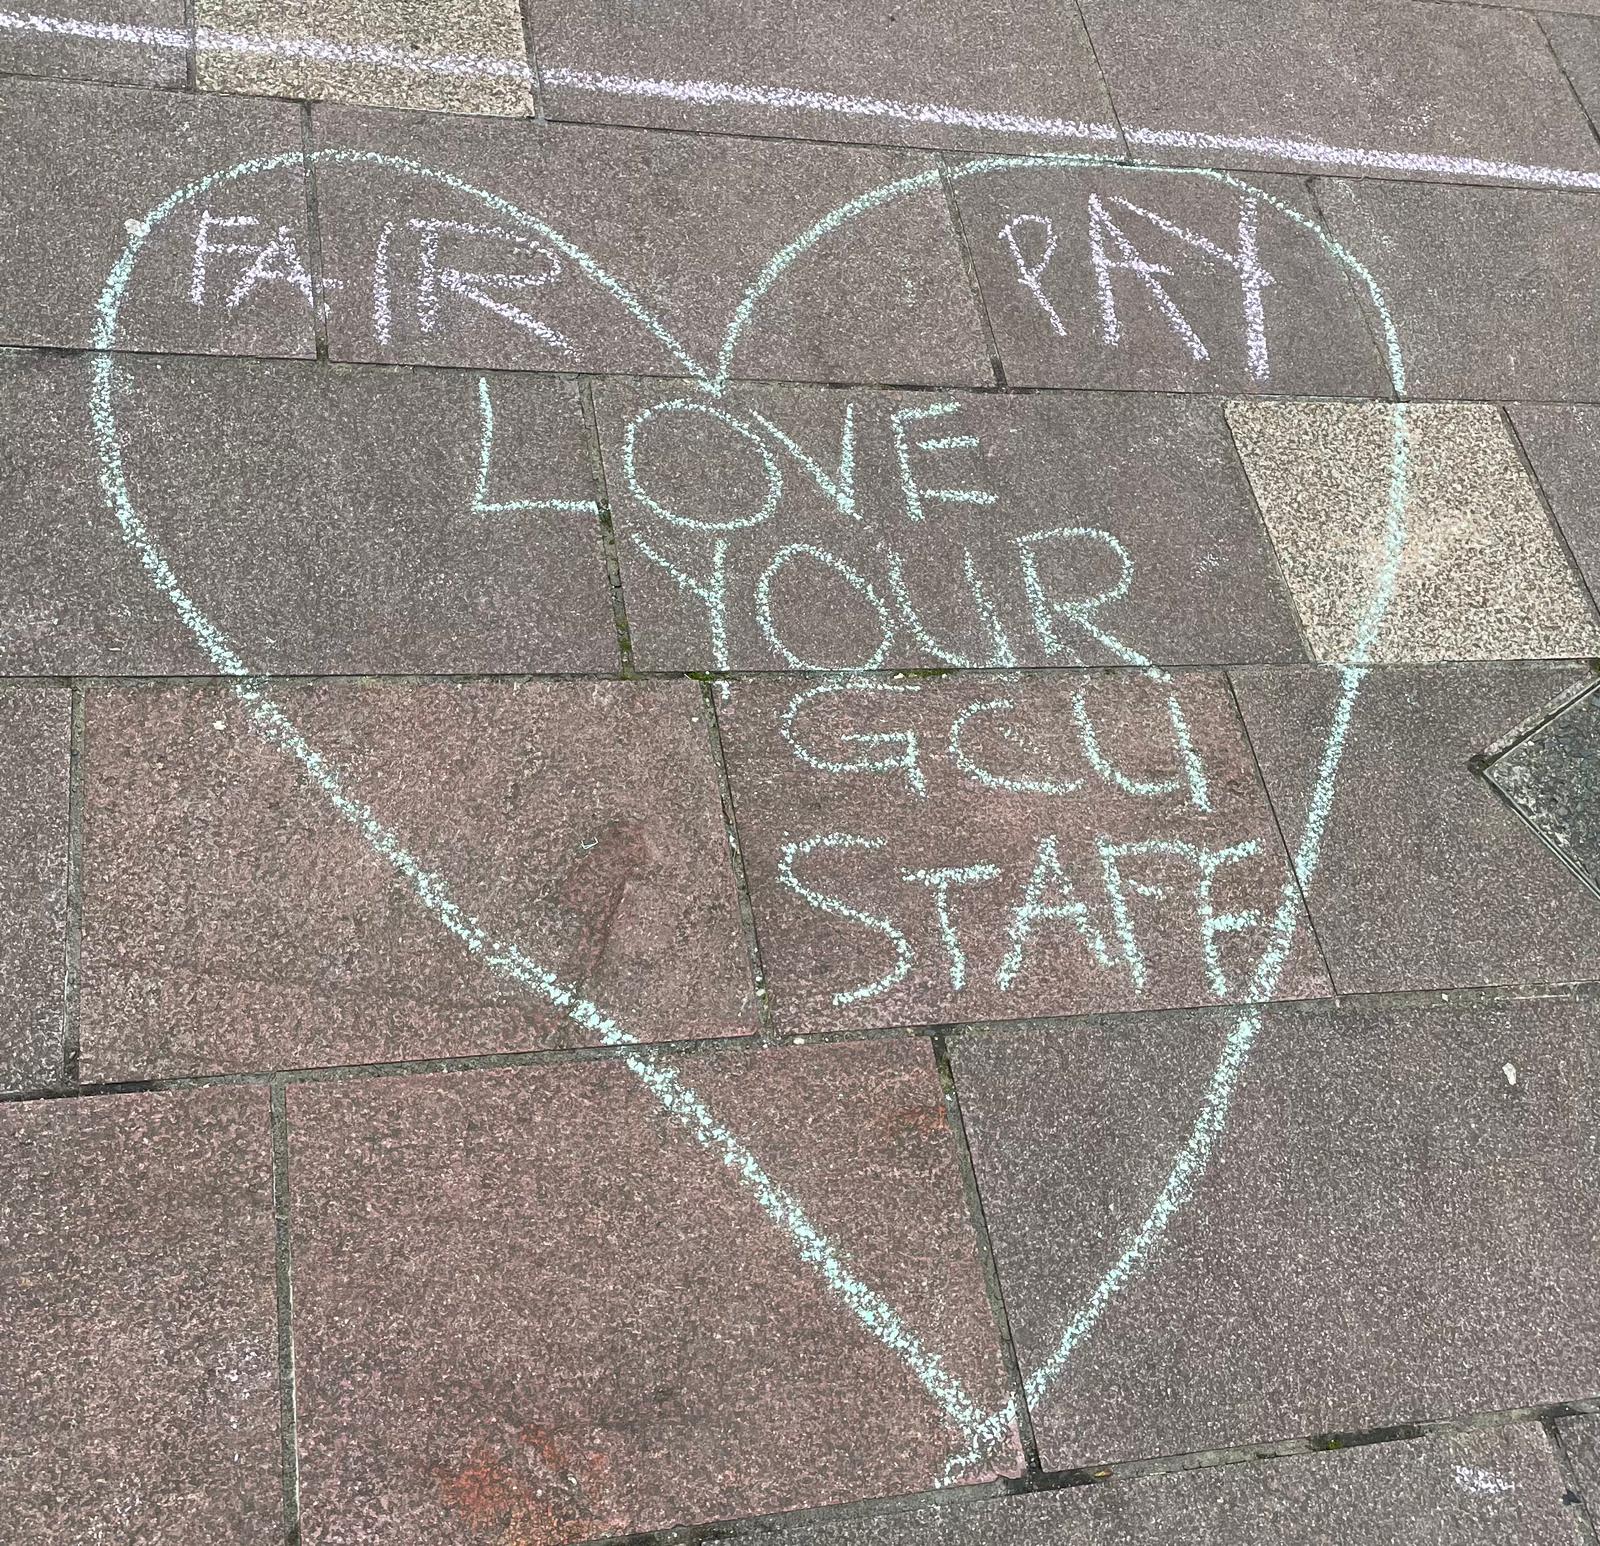 FAIR PAY
LOVE
YOUR
GCU
STAFF